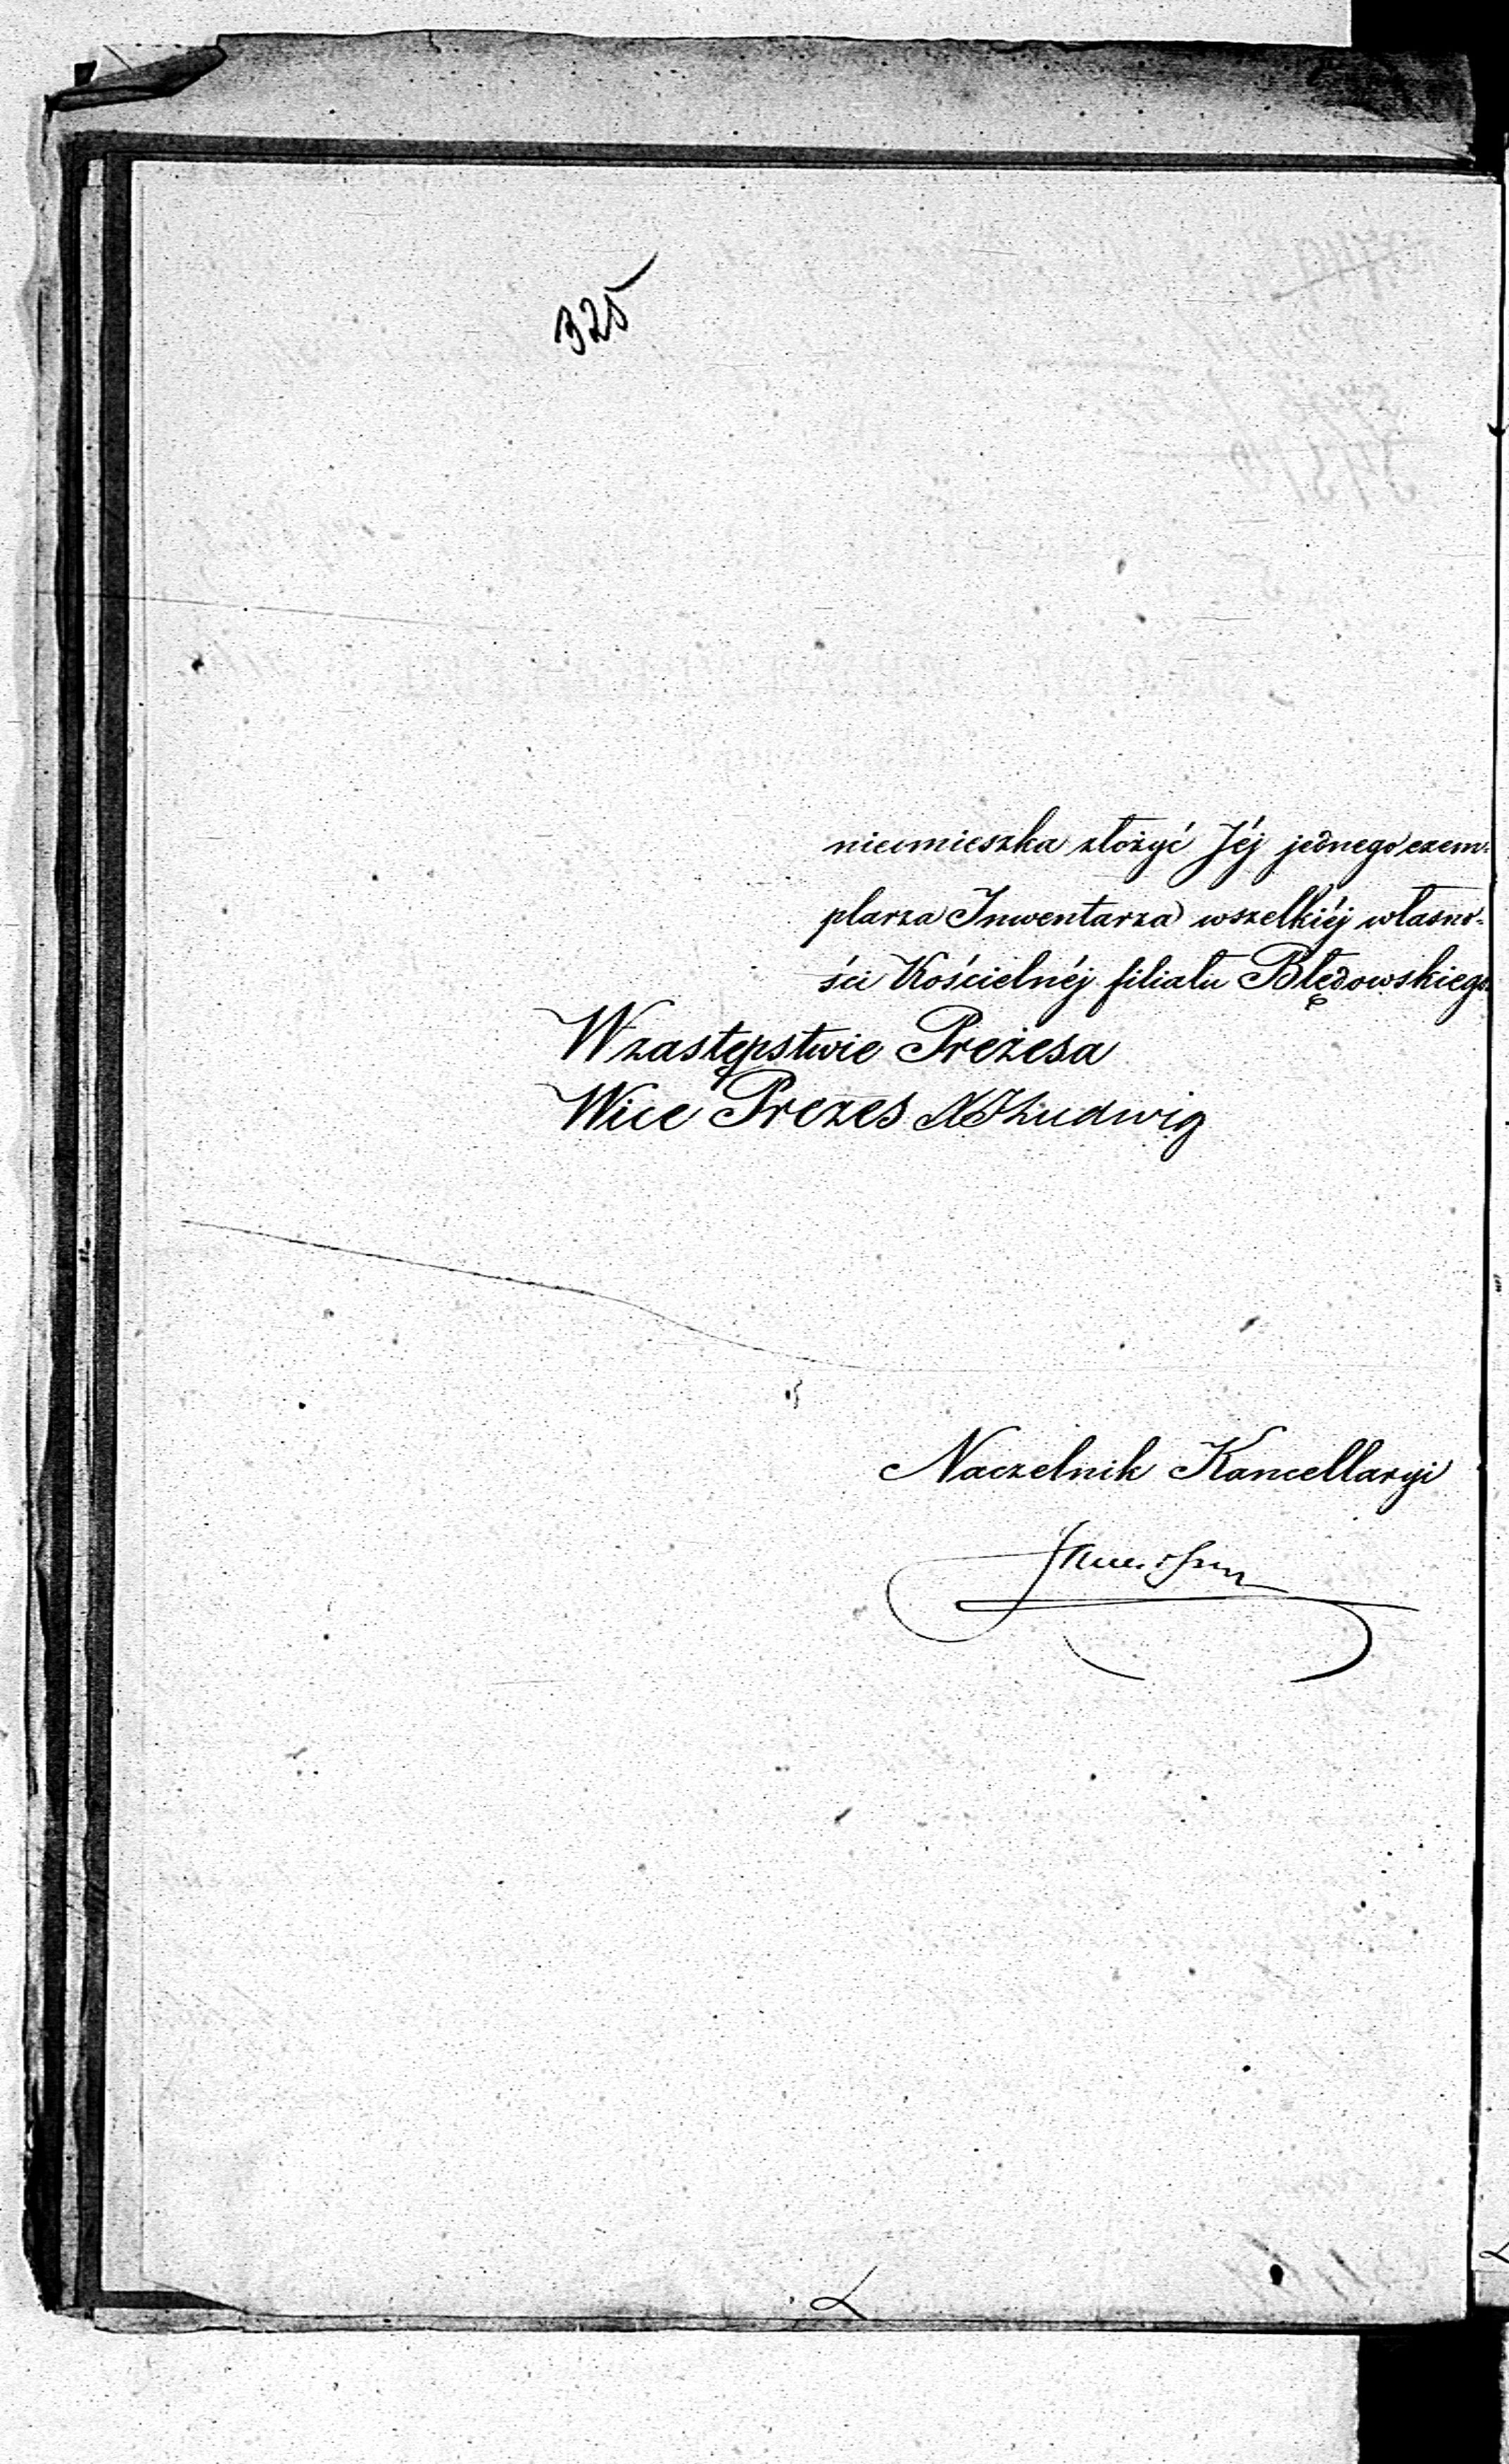 325
nieomieszka złożyć Jéj jednego exem-
plarza Inwentarza wszelkiéj własno-
ści Kościelnéj filiału Błędowskiego.
W zastępstwie Prezesa
Wice Prezes Ludwig
Naczelnik Kancellaryi